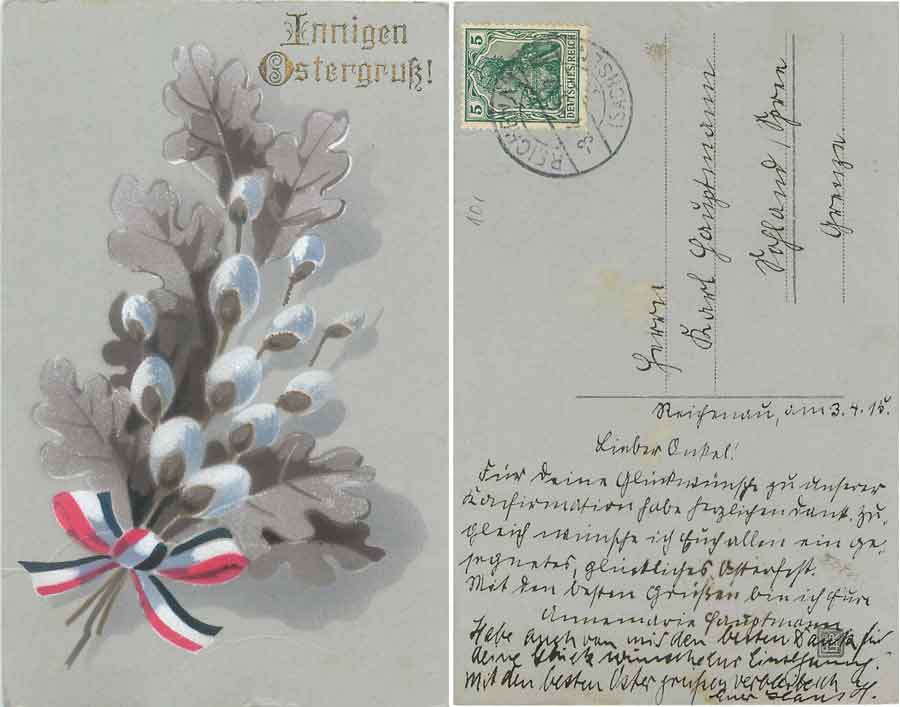 Innigen
Ostergruß!
5
5
DEUTSCHES REICH
REICHENAU
(SACHSEN)
101
Herrn
Karl Hauptmann
Sohland / Spree
Grenze
Reichenau, am 3.4.15.
Lieber Onkel!
Für deine Glückwünsche zu unserer
Konfirmation habe herzlichen Dank. Zu-
gleich wünsche ich Euch allen ein ge-
segnetes, glückliches Osterfest.
Mit den besten Grüßen bin ich Eure
Annemarie Hauptmann
Habe auch von mir den besten Dank für
deine Glückwünsche zur
Mit den besten Ostergrüßen verbleibe ich
Euer Hans H.